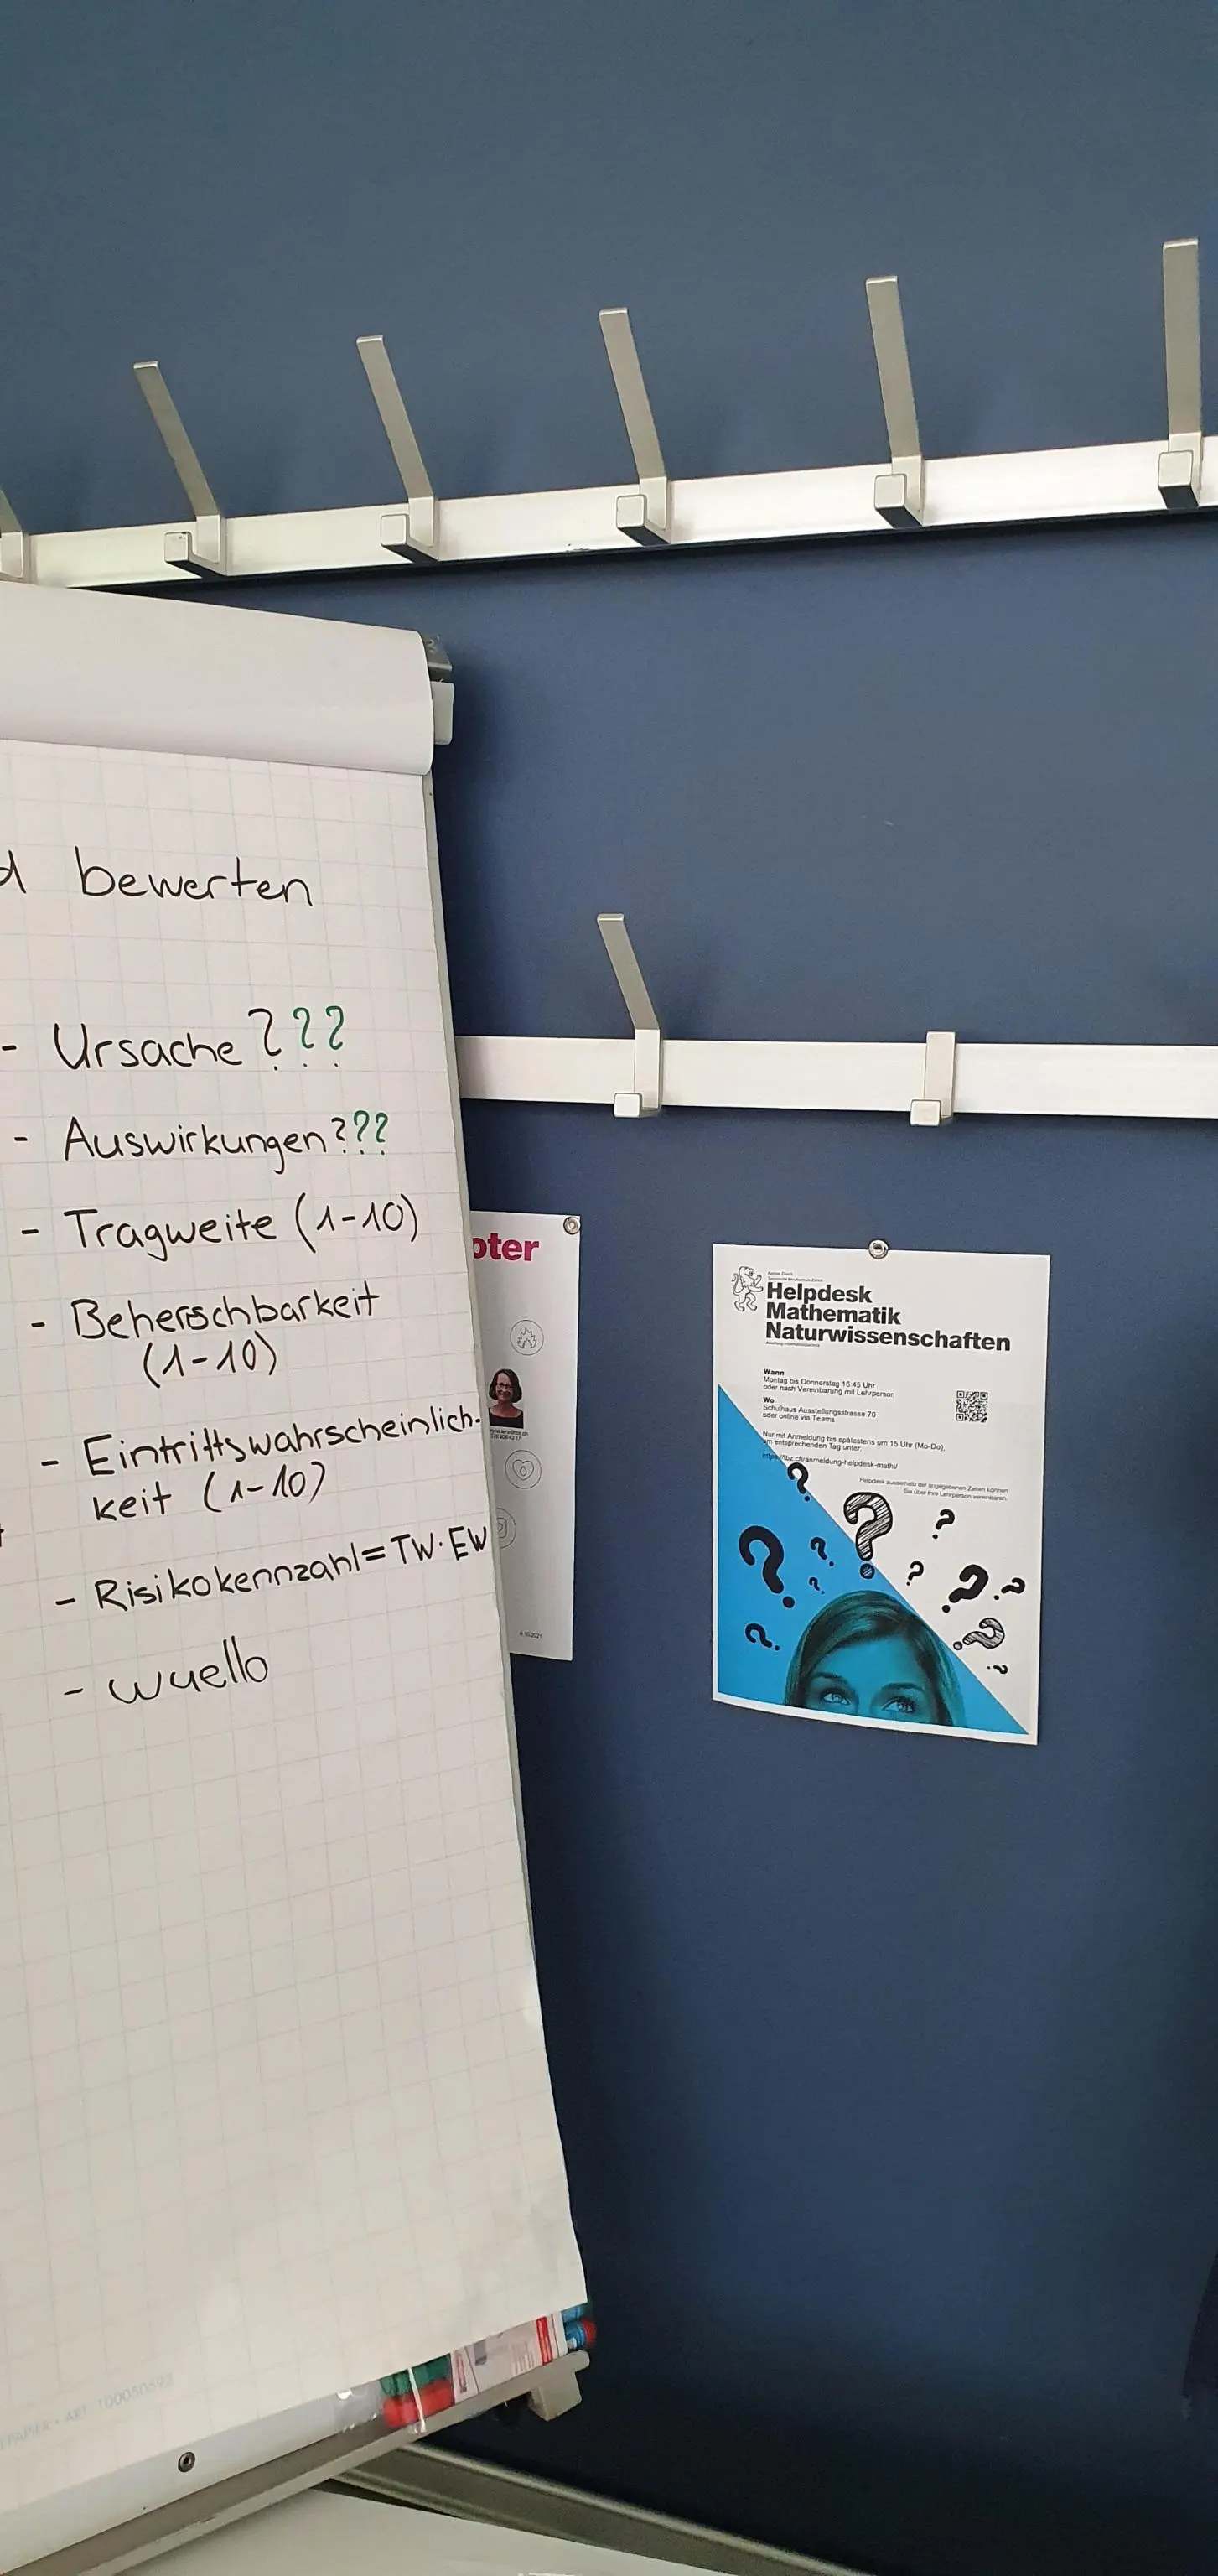 d bewerten
- Ursache???
- Auswirkungen???
- Tragweite (1-10)
- Beherschbarkeit
(1-10)
- Eintrittswahrscheinlich-
keit (1-10)
- Risikokennzahl=TW·EW
- wuello
oter
Helpdesk
Mathematik
Naturwissenschaften
Wann
Montag bis Donnerstag 16:45 Uhr
oder nach Vereinbarung mit Lehrperson
Wo
Schulhaus Ausstellungsstrasse 70
oder online via Teams
Nur mit Anmeldung bis spätestens um 15 Uhr (Mo-Do),
am entsprechenden Tag unter:
https://tbz.ch/anmeldung-helpdesk-math/
Helpdesk ausserhalb der angegebenen Zeiten können
Sie über Ihre Lehrperson vereinbaren.